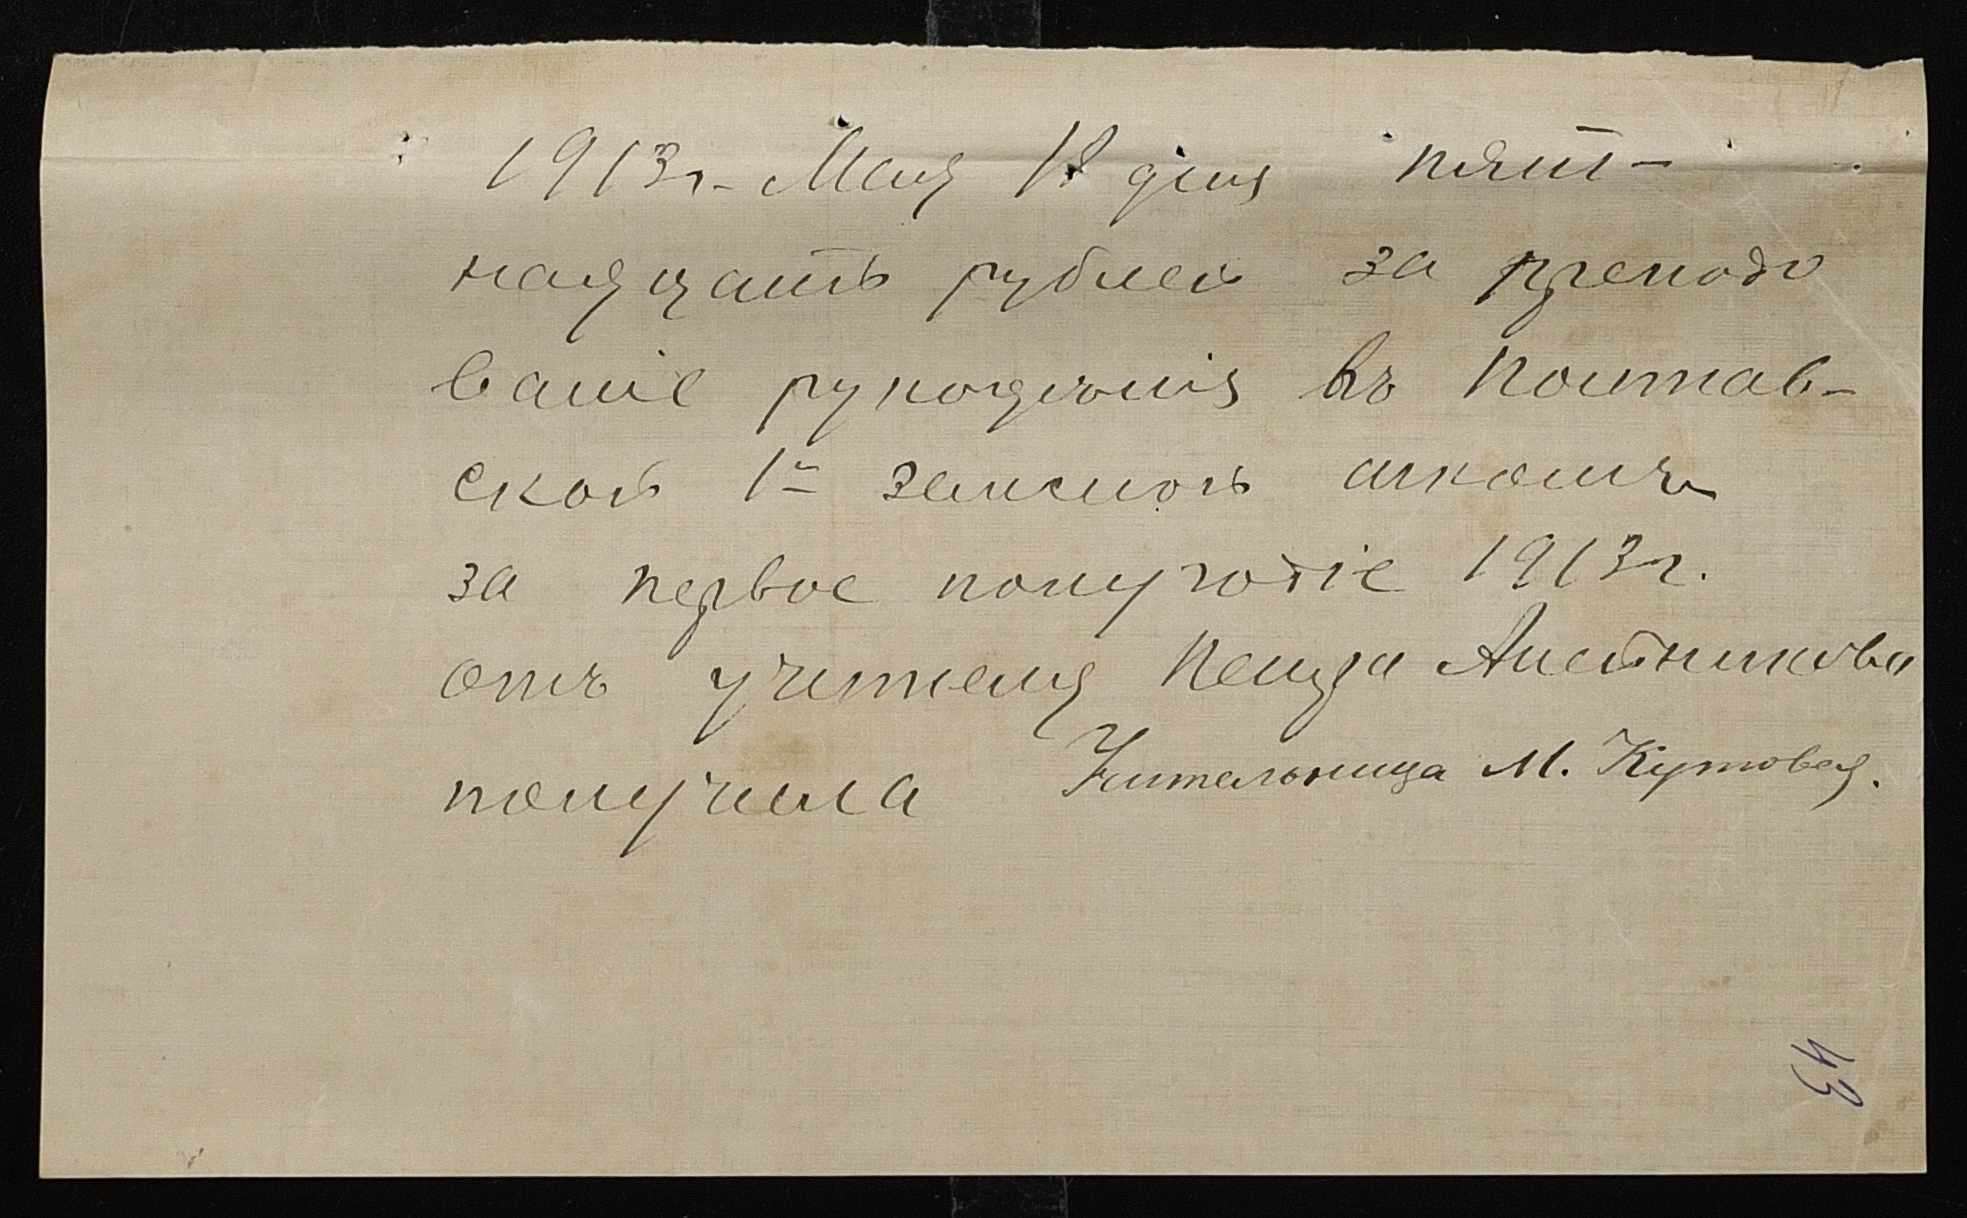 1913г. Мая 18 дня пят-
надцать рублей за преподо
ваніе рукодѣлія въ Полтав-
ской 1й земской школѣ
за первое полугодіе 1913г.
отъ учителя
получила Учительница М. Кутовая.
43